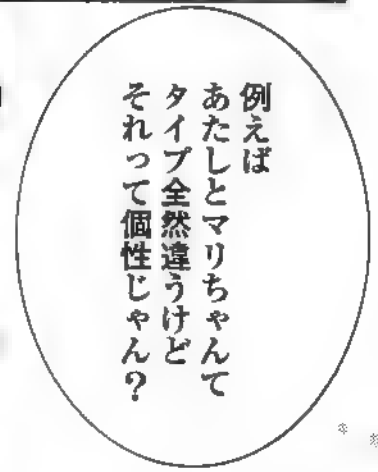 例えば
あたしとマリちゃんて
タイプ全然違うけど
それって個性じゃん?